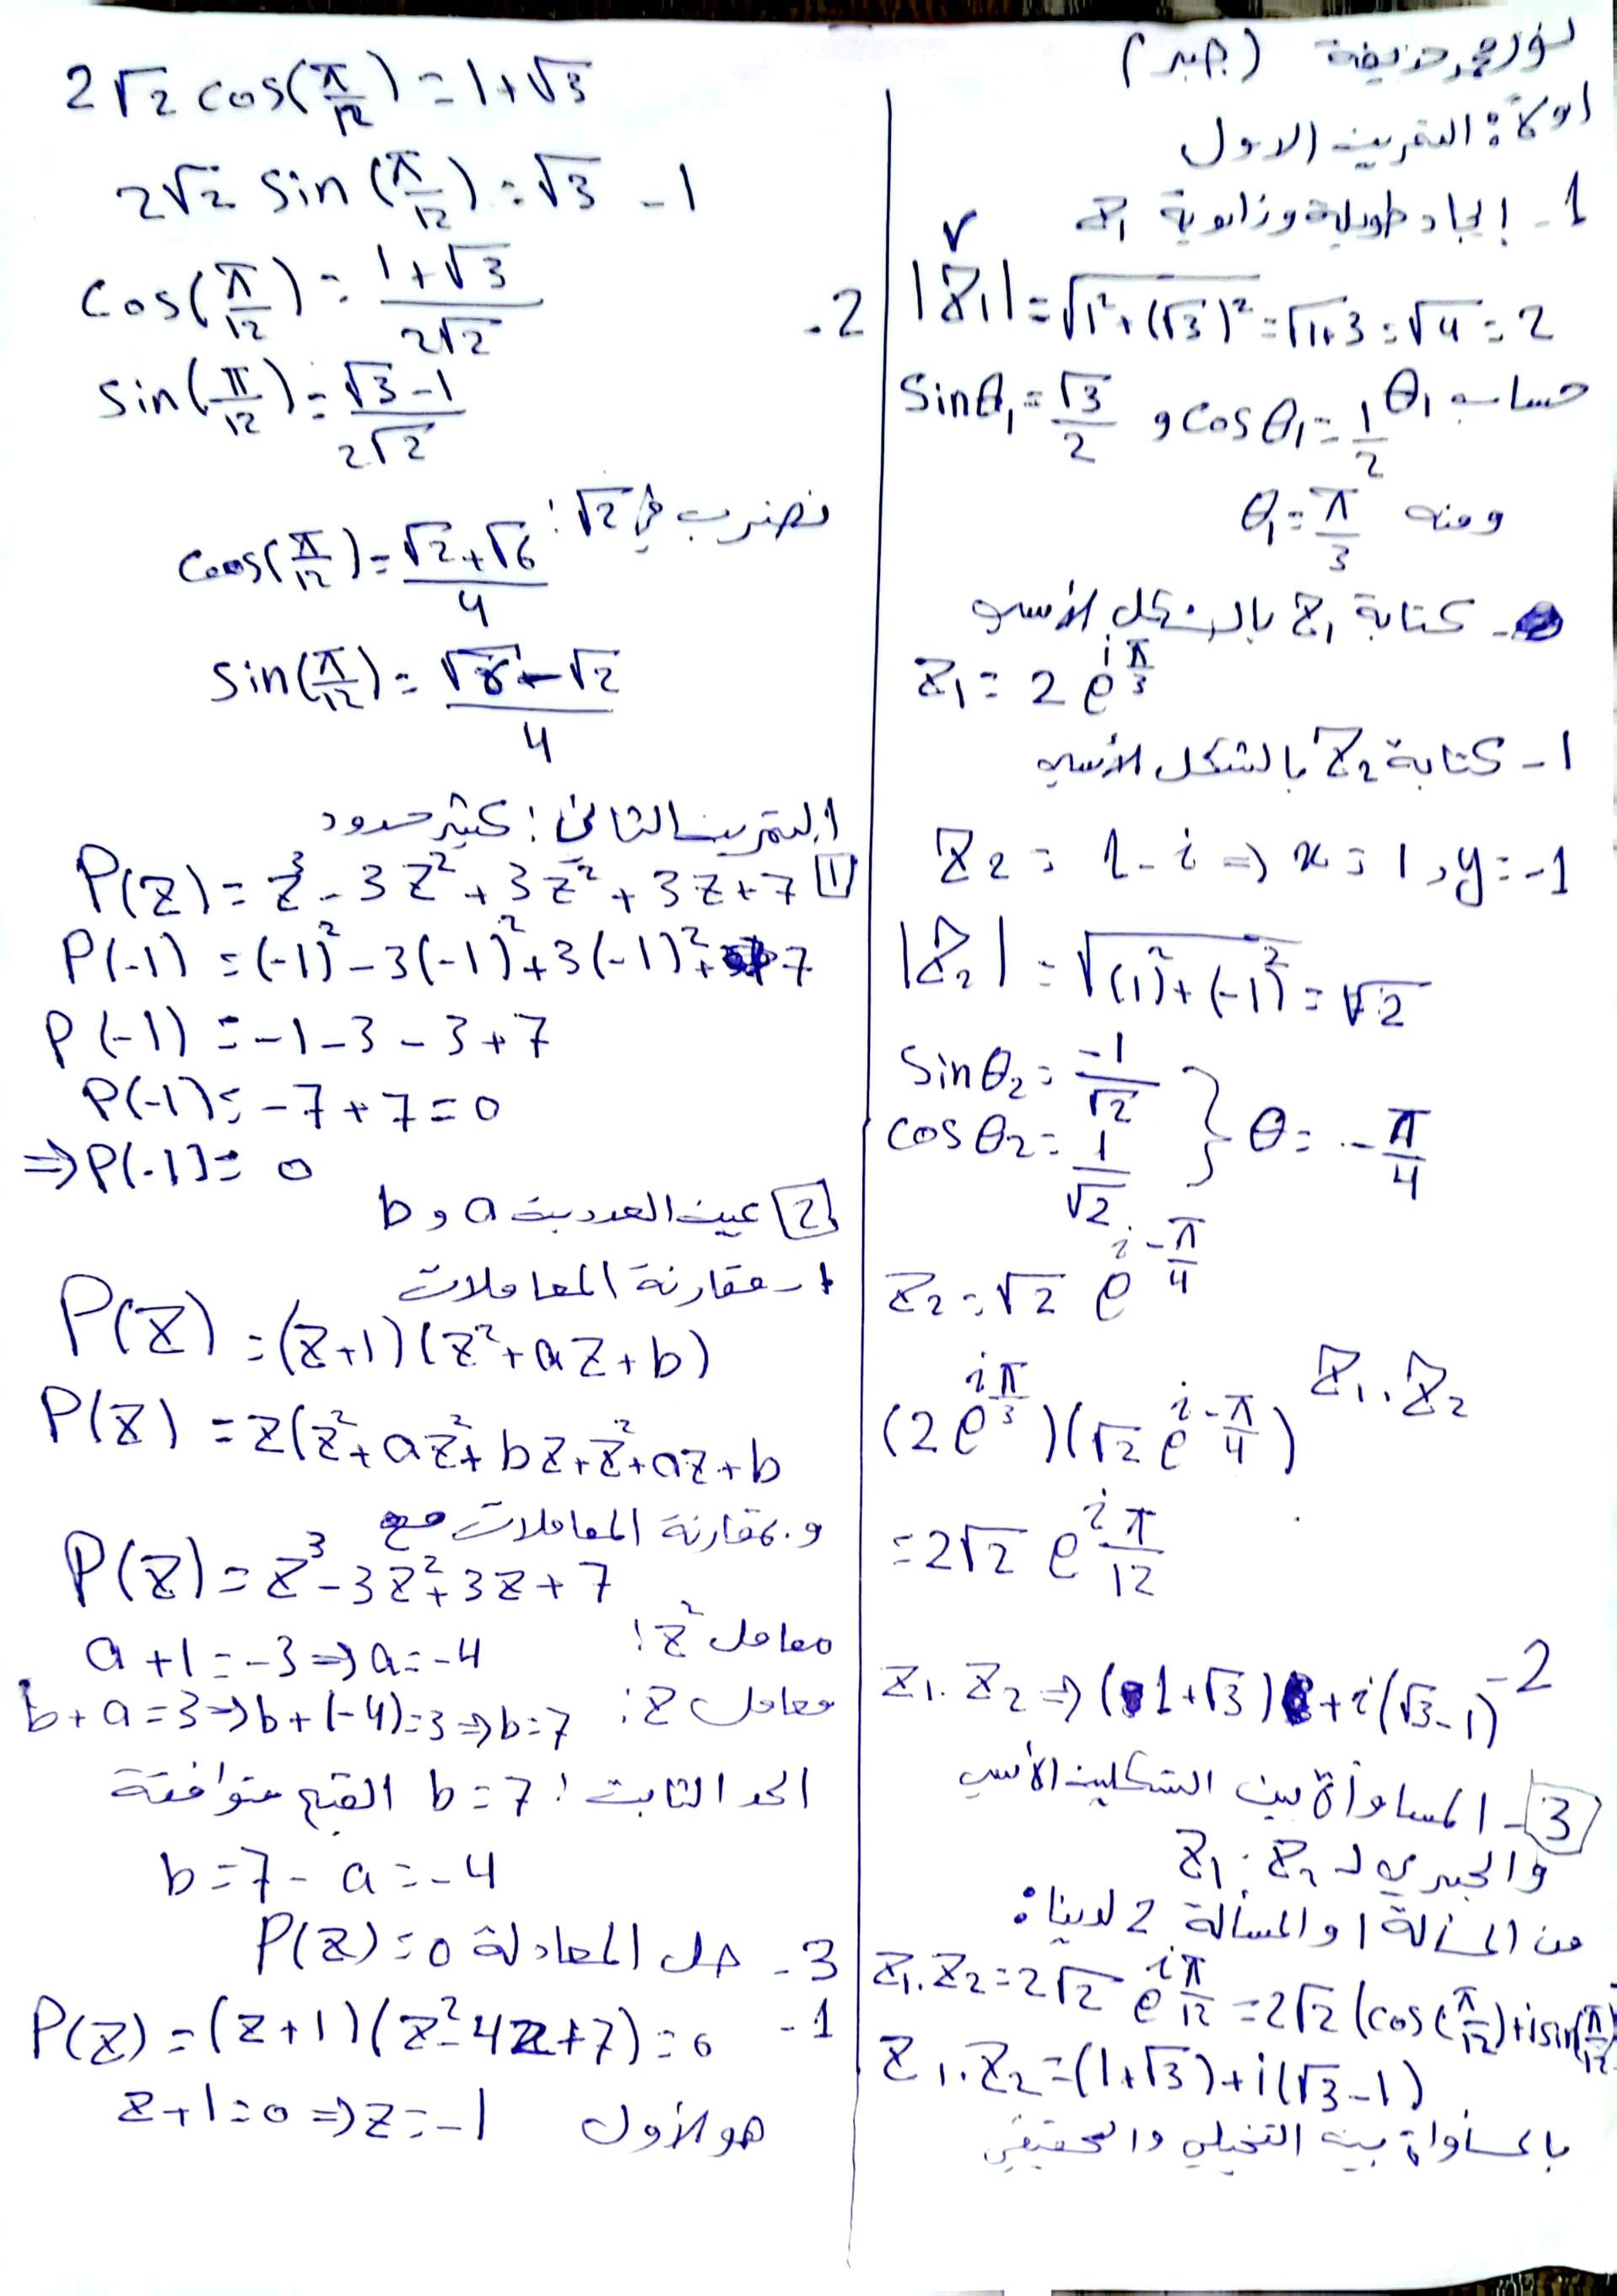 (جبر)
اولاً: التمرين الاول
1- إيجاد طويلة وزاوية Z₁
r
|Z₁| = √(1² + (√3)²) = √(1+3) = √4 = 2
حساب θ₁ cosθ₁ = 1/2 و sinθ₁ = √3/2
ومنه θ₁ = π/3
- كتابة Z₁ بالشكل الأسي
Z₁ = 2 e^(iπ/3)
1- كتابة Z₂ بالشكل الأسي
Z₂ = 1 - i ⇒ x = 1, y = -1
|Z₂| = √((1)² + (-1)²) = √2
sinθ₂ = -1/√2
cosθ₂ = 1/√2 } θ = -π/4
Z₂ = √2 e^(i-π/4)
Z₁.Z₂
(2 e^(iπ/3))(√2 e^(i-π/4))
= 2√2 e^(iπ/12)
-2
Z₁.Z₂ ⇒ (1+√3) + i(√3-1)
3- المساوأة بين الشكلين الأسي
والجبري لـ Z₁.Z₂
من المسألة 1 والمسألة 2 لدينا:
Z₁.Z₂ = 2√2 e^(iπ/12) = 2√2 (cos(π/12) + i sin(π/12)
Z₁.Z₂ = (1+√3) + i(√3-1)
بالمساواة بين التخيلي والحقيقي
2√2 cos(π/12) = 1+√3
2√2 sin(π/12) = √3 - 1
cos(π/12) = (1+√3)/(2√2) -2
sin(π/12) = (√3-1)/(2√2)
نضرب في √2:
cos(π/12) = (√2+√6)/4
sin(π/12) = (√6-√2)/4
التمرين الثاني: كثير حدود
1 P(Z) = Z³ - 3Z² + 3Z² + 3Z + 7
P(-1) = (-1)² - 3(-1)² + 3(-1)² + 7
P(-1) = -1 - 3 - 3 + 7
P(-1) = -7 + 7 = 0
⇒ P(-1) = 0
2 عين العددين a و b
1- مقارنة المعاملات
P(Z) = (Z+1)(Z² + aZ + b)
P(Z) = Z(Z² + aZ² + bZ + Z² + aZ + b
و بمقارنة المعاملات مع
P(Z) = Z³ - 3Z² + 3Z + 7
معامل Z²: a + 1 = -3 ⇒ a = -4
معامل Z: b + a = 3 ⇒ b + (-4) = 3 ⇒ b = 7
الحد الثابت: b = 7 القيم متوافقة
b = 7 - a = -4
3- حل المعادلة P(Z) = 0
1- P(Z) = (Z+1)(Z² - 4Z + 7) = 0
Z + 1 = 0 ⇒ Z = -1 هو الأول